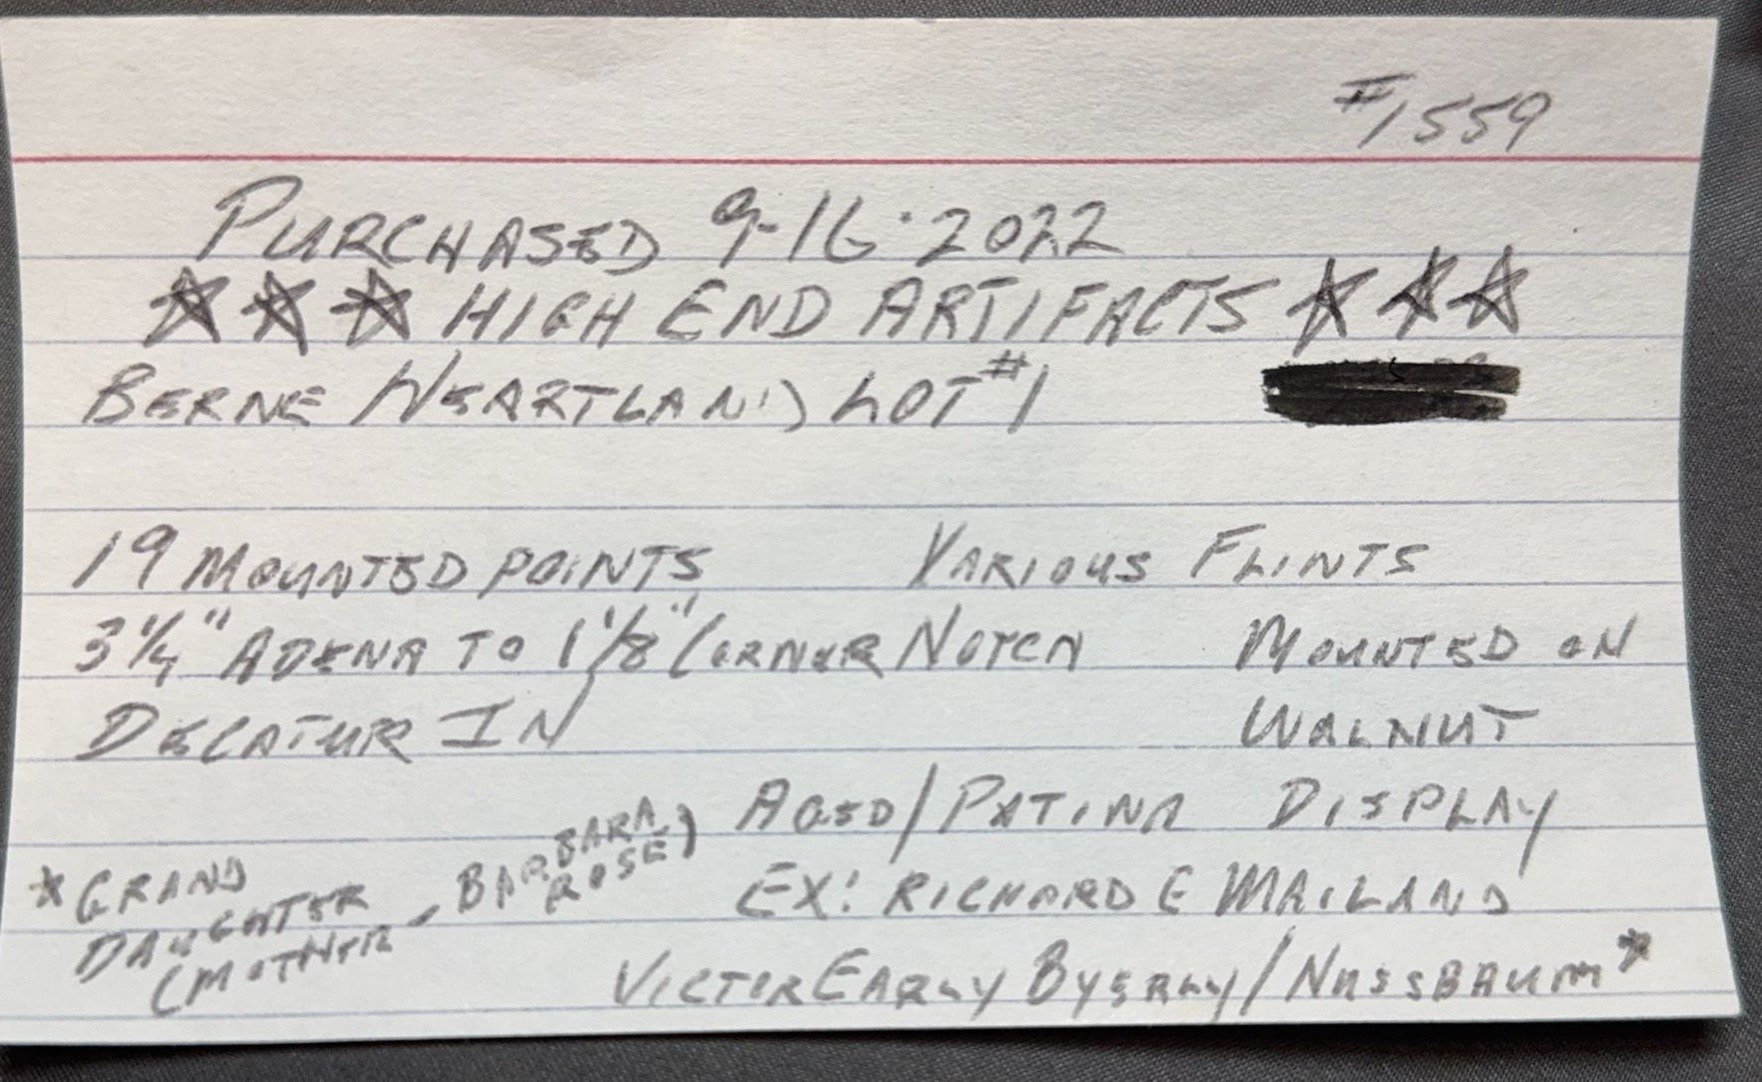 #1559
PURCHASED 9-16-2022
☆☆☆ HIGH END ARTIFACTS ☆☆☆
BERNE HEARTLAND LOT #1
19 MOUNTED POINTS VARIOUS FLINTS
3 1/4" ADENA TO 1 1/8" CORNER NOTCH MOUNTED ON
DECATUR IN WALNUT
AGED/PATINA DISPLAY
EX: RICHARD E MAILAND
VICTOR EARLY BYERLY/NUSSBAUM*
*GRAND
DAUGHTER
(MOTHER - BARBARA
ROSE)